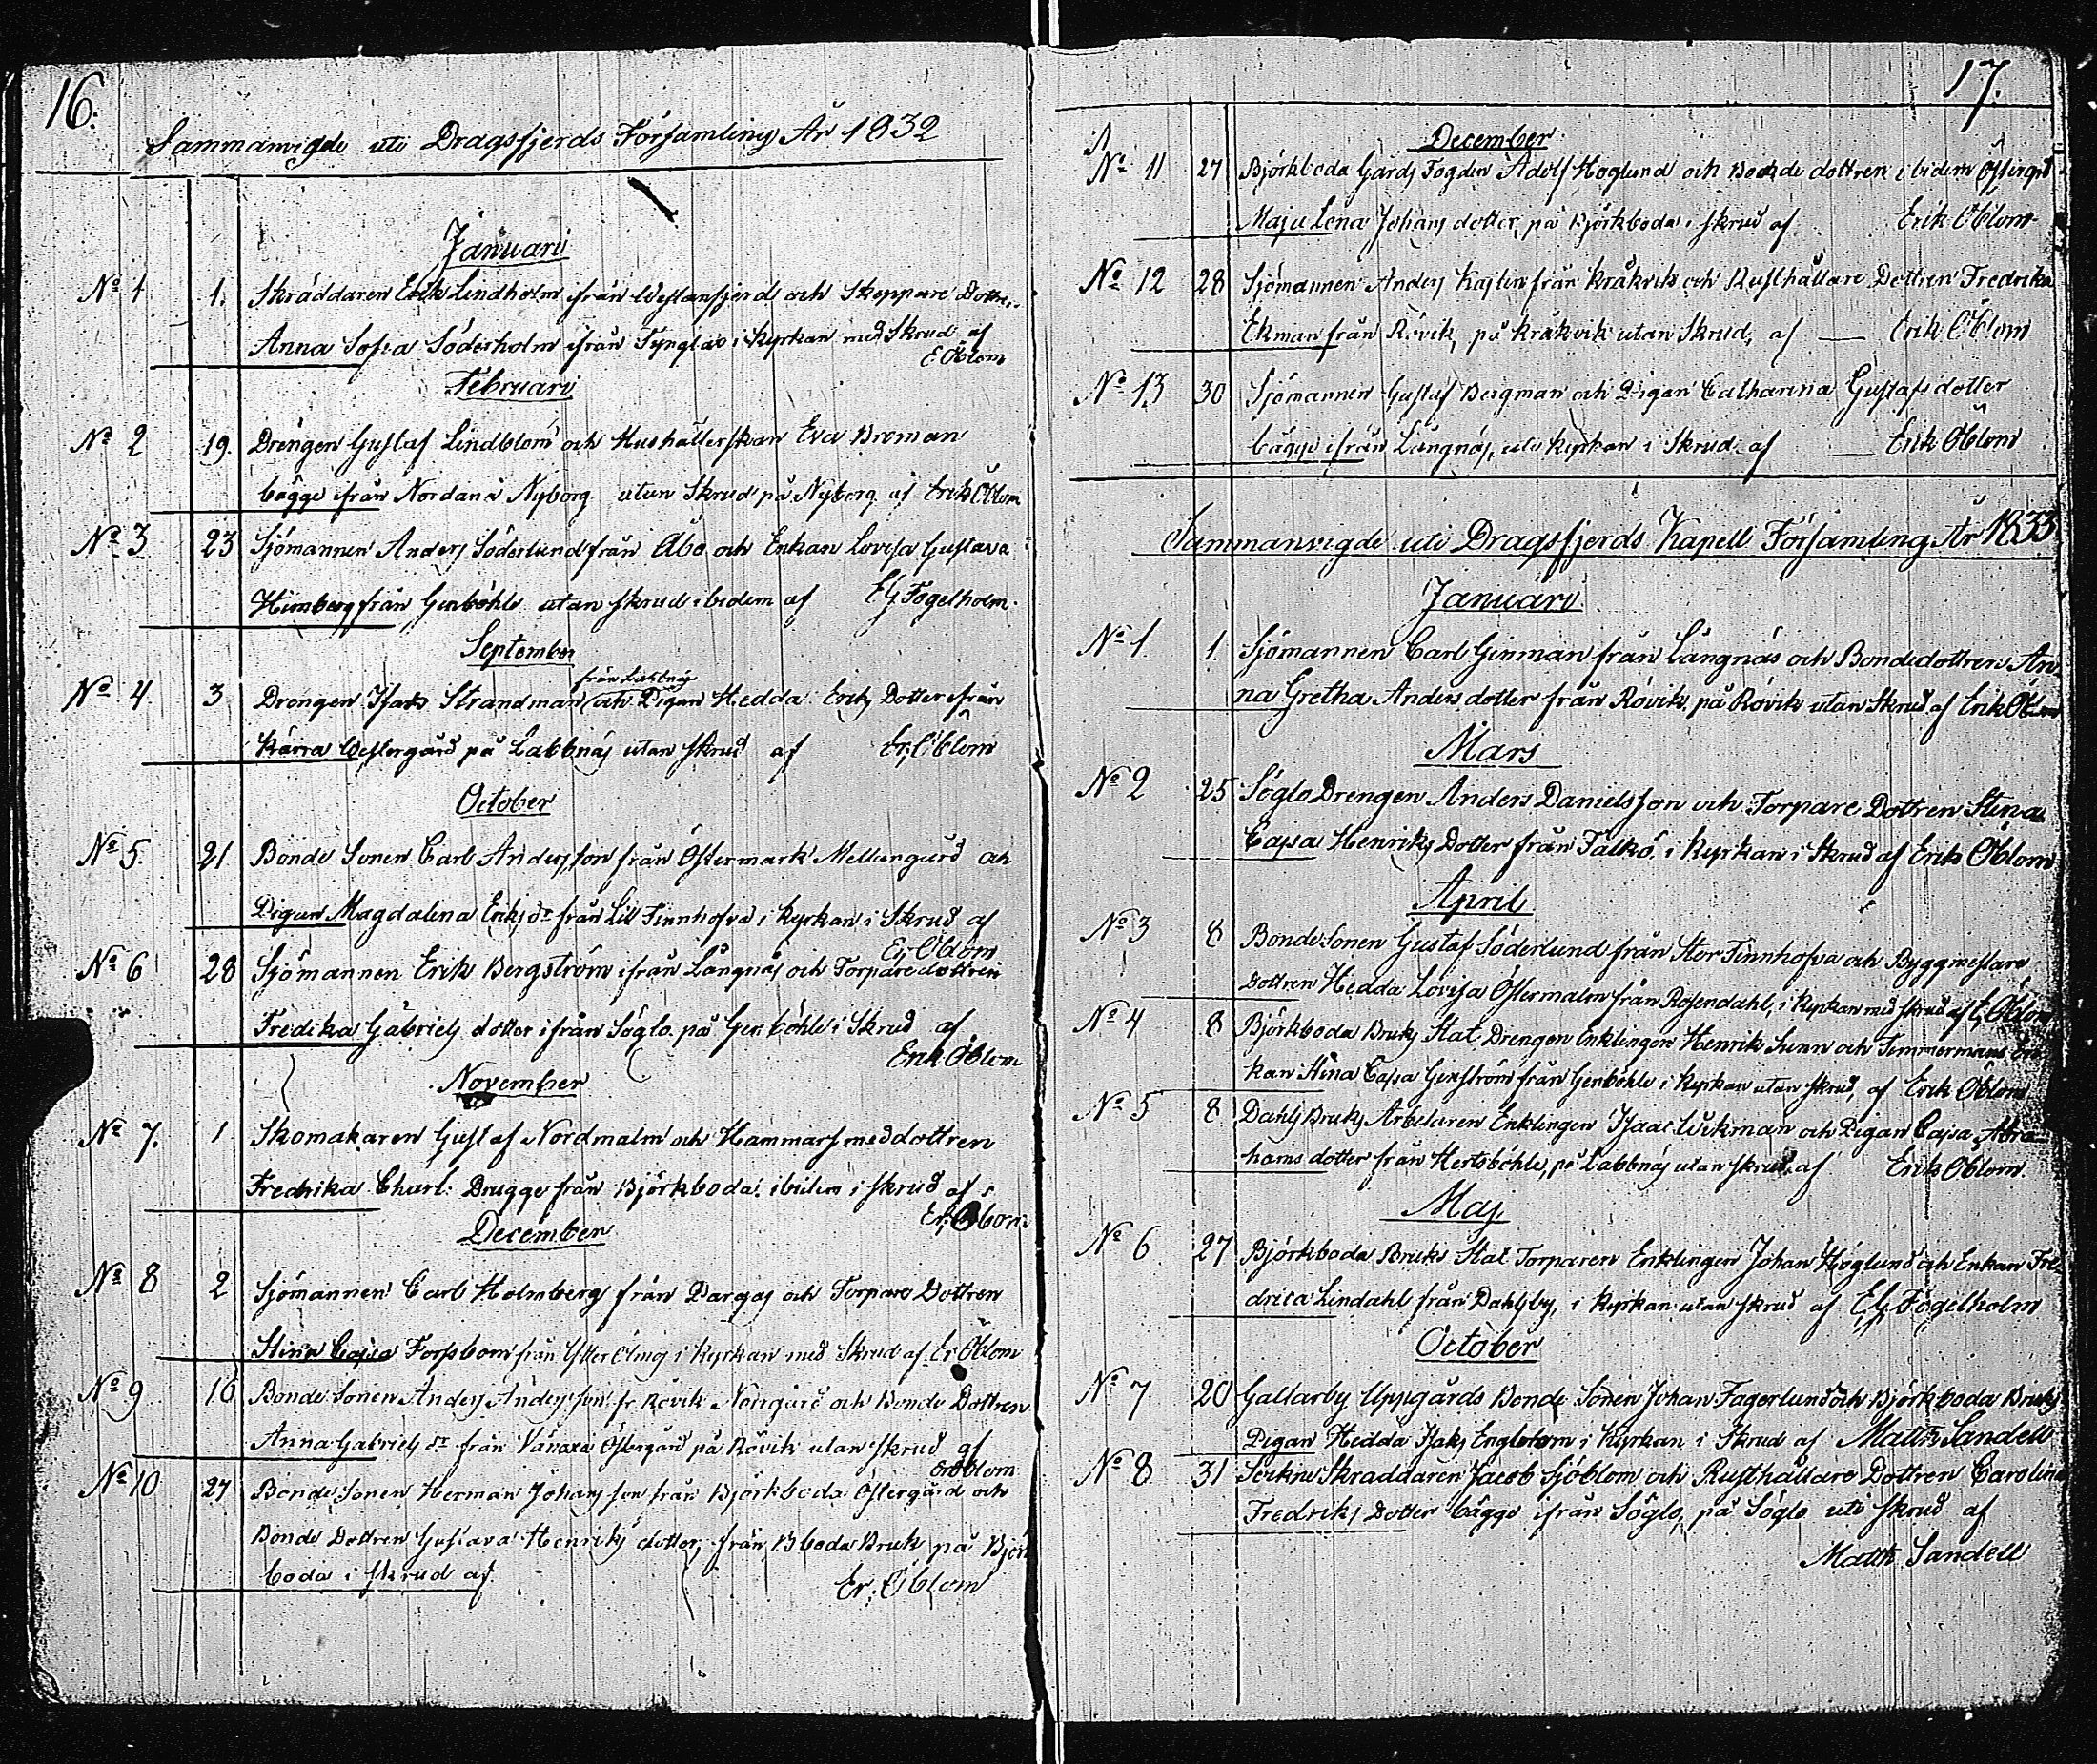 16.
Sammanvigde uti Dragsfjerds Församling År 1832
Januari
No 1 1. Skräddaren Erik Lindholm ifrån Westanfjerd och Skeppare Dottr.
Anna Sofia Söderholm ifrån i Kyrkan med Skrud af
E Öblom
Februari
No 2 19. Drengen Gustaf Lindblom och Hushållerskan Eva Broman
bägge ifrån Nordanå Nyborg utan Skrud på Nyborg af Erik Öblom
No 3 23 Sjömannen Anders Söderlund från Åbo och Enkan Lovisa Gustava
Himberg från Genböhle utan skrud ibidem af EG Fogelholm.
September
från Labbnäs
No 4. 3 Drengen Isak Strandman och Pigan Hedda Eriks Dotter ifrån
Kärra Westergård på Labbnäs utan skrud af Er, Öblom
October
No 5. 21 Bonde Sonen Carl Andersson från Östermark Mellangård och
Pigan Magdalena Eriks dr från Lill Finnhofva i Kyrkan i Skrud af
Er, Öblom
No 6 28 Sjömannen Erik Bergström ifrån Långnäs och Torpare dottren
Fredika Gabriels dotter ifrån Söglo på Genböhle i Skrud af
Erik Öblom
November
No 7. 1 Skomakaren Gustaf Nordmalm och Hammarsmeddottren
Fredrika Charl. Drugge från Björkboda ibidem i skrud af
Er, Öblom
December
No 8 2 Sjömannen Carl Holmberg från Pargas och Torpare Dottren
Stina Cajsa Forsbom från Ytter Ölmos i Kyrkan med Skrud af Er Öblom
No 9 16 Bonde Sonen Anders Andersson fr Rövik Norrgård och Bonde Dottren
Anna Gabriels dr från Vänoxa Östergård på Rövik utan skrud af
Er Öblom
No 10 27 Bonde Sonen Herman Johansson från Björkboda Östergård och
Bonde Dottren Gustava Henriks dotter, från Bboda Bruk på Björ
boda i skrud af Er, Öblom
17.
December
No 11 27 Björkboda Gårds Fogden Adolf Höglund och Bonde dottren ibidem Östergrd
Maja Lena Johans dotter, på Björkboda i skrud af Erik Öblom
No 12 28 Sjömannen Anders Kajlin från Kråkvik och Rusthållare Dottren Fredrika
Ekman från Rövik, på Kråkvik utan Skrud, af Erik Öblom
No 13 30 Sjömannen Gustaf Bergman och Pigan Catharina Gustafs dotter
bägge ifrån Långnäs, uti Kyrkan i Skrud af Erik Öblom
Sammanvigde uti Dragsfjerds Kapell Församling År 1833
Januari
No 1. 1 Sjömannen Carl Ginman från Långnäs och Bondedottren An
na Gretha Anders dotter från Rövik, på Rövik utan Skrud af Erik Öblom
Mars
No 2 25 Söglo Drengen Anders Danielsson och Torpare Dottren Stina
Cajsa Henriks Dotter från Falkö, i Kyrkan i Skrud af Erik Öblom
April
No 3 8 Bonde Sonen Gustaf Söderlund från Stor Finnhofva och Byggmestare
Dottren Hedda Lovisa Östermalm från Rosendahl, i Kyrkan med skrud af E, Öblom
No 4 8 Björkboda Bruks Stat Drengen Enklingen Henrik Sunn och Timmermans En
kan Stina Cajsa Genström från Genböhle i Kyrkan utan skrud, af Erik Öblom
No 5 8 Dahls Bruks Arbetaren Enklingen Isaac Wikman och Pigan Cajsa Abra
hams dotter från Hertsböhle, på Labbnäs utan skrud, af Erik Öblom.
Maj
No 6 27 Björkboda Bruks Stat Torparen Enklingen Johan Höglund och Enkan Fre
drica Lindahl från Dahlsby, i Kyrkan utan skrud af EG Fogelholm
October
No 7 20 Galtarby Uppgårds Bonde Sonen Johan Fagerlund och Björkboda Bruks
Pigan Hedda Isaks Englblom i Kyrkan i Skrud af Matth Sandell
No 8 31 Sockne Skraddaren Jacob Sjöblom och Rusthållare Dottren Carolina
Fredriks Dotter bägge ifrån Söglo, på Söglo uti skrud af
Matth Sandell